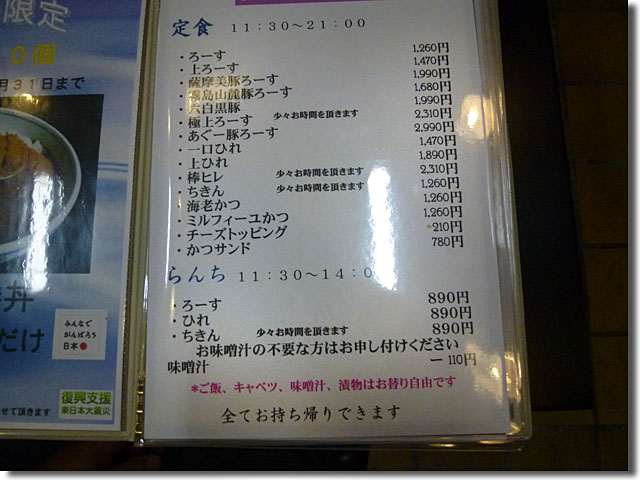 限定
０個
月３１日まで
丼
だけ
みんなで
がんばろう
日本
復興支援
東日本大震災
せて頂きます
定食 11:30～21:00
・ろーす 1,260円
・上ろーす 1,470円
・薩摩美豚ろーす 1,990円
・霧島山麓豚ろーす 1,680円
・六白黒豚 1,990円
・極上ろーす 少々お時間を頂きます 2,310円
・あぐー豚ろーす 2,990円
・一口ひれ 1,470円
・上ひれ 1,890円
・棒ヒレ 少々お時間を頂きます 2,310円
・ちきん 少々お時間を頂きます 1,260円
・海老かつ 1,260円
・ミルフィーユかつ 1,260円
・チーズトッピング 210円
・かつサンド 780円
らんち 11:30～14:0
・ろーす 890円
・ひれ 890円
・ちきん 少々お時間を頂きます 890円
お味噌汁の不要な方はお申し付けください
味噌汁 ー110円
*ご飯、キャベツ、味噌汁、漬物はお替り自由です
全てお持ち帰りできます